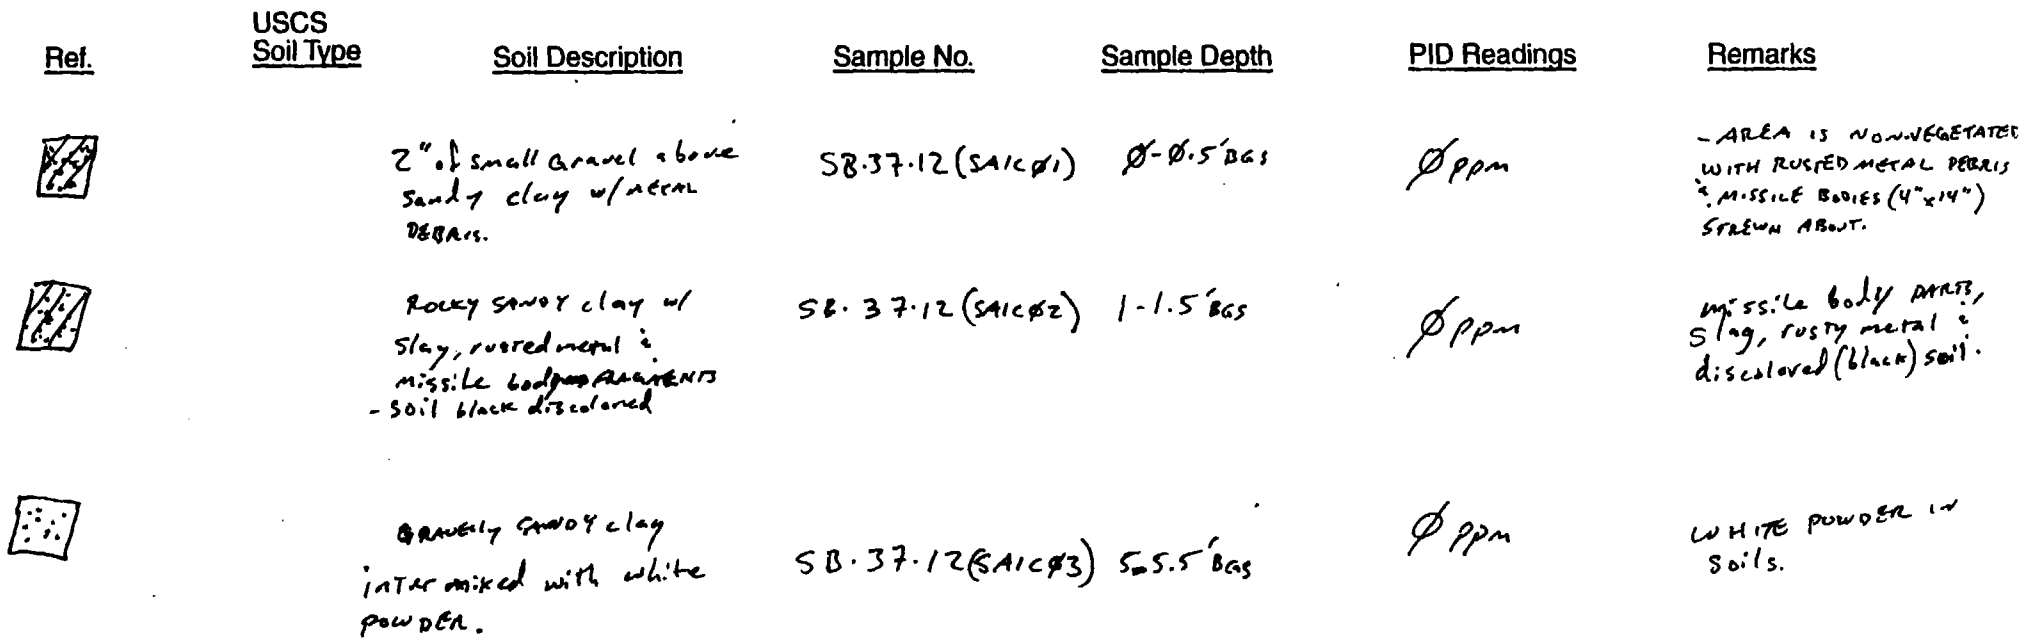 USCS
Ref. Soil Type Soil Description Sample No. Sample Depth PID Readings Remarks
2" of small Gravel above
sandy clay w/ METAL
DEBRIS.
SB.37.12 (SAIC Ø1)
Ø-Ø.5' BGS
Ø ppm
- AREA IS NON-VEGETATED
WITH RUSTED METAL DEBRIS
& MISSILE BODIES (4"x14")
STREWN ABOUT.
ROCKY SANDY clay w/
slag, rusted metal &
missile body FRAGMENTS
- soil black discolored
SB.37.12 (SAIC Ø2)
1-1.5' BGS
Ø ppm
missile body PARTS,
slag, rusty metal &
discolored (black) soil.
GRAVELLY SANDY clay
inter mixed with white
POWDER.
SB.37.12 (SAIC Ø3)
5-5.5' BGS
Ø ppm
WHITE POWDER IN
Soils.